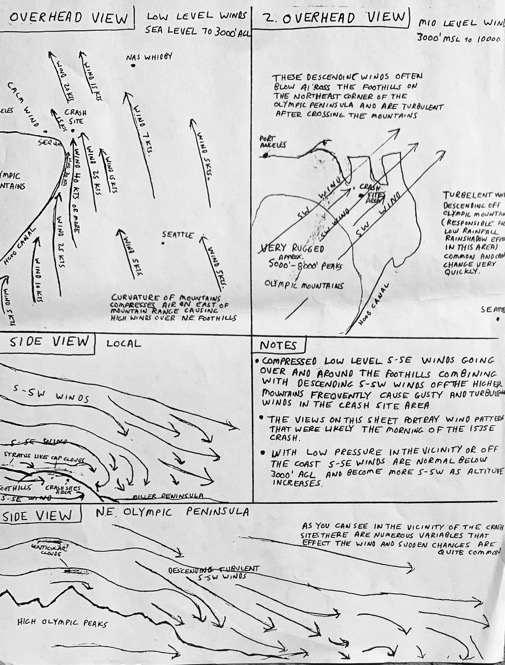 OVERHEAD VIEW
LOW LEVEL WINDS
SEA LEVEL TO 3000' AGL
NAS WHIDBY
WIND 20 KTS
WIND 15 KTS
CALM
WIND
CRASH
SITE
WIND 7 KTS
WIND 5 KTS
WIND 40 KTS OR MORE
WIND 25 KTS
WIND 15 KTS
WIND 25 KTS
HOOD CANAL
WIND 10 KTS
WIND 5 KTS
WIND 5 KTS
SEATTLE
WIND 5 KTS
CURVATURE OF MOUNTAINS
COMPRESSES AIR ON EAST OF
MOUNTAIN RANGE CAUSING
HIGH WINDS OVER NE FOOTHILLS
2. OVERHEAD VIEW
MID LEVEL WIN
3000' MSL TO 10000
THESE DESCENDING WINDS OFTEN
BLOW ACROSS THE FOOTHILLS ON
THE NORTHEAST CORNER OF THE
OLYMPIC PENINSULA AND ARE TURBULENT
AFTER CROSSING THE MOUNTAINS
PORT
ANGELES
CRASH
SITE
AREA
SW WIND
SW WIND
SW WIND
VERY RUGGED
APPROX.
5000'-8000' PEAKS
OLYMPIC MOUNTAINS
HOOD CANAL
TURBELENT W
DESCENDING OFF
OLYMPIC MOUNTA
(RESPONSIBLE
LOW RAINFALL
RAINSHADOW EFF
IN THIS AREA)
COMMON AND
CHANGE VERY
QUICKLY.
SEA
SIDE VIEW
LOCAL
S-SW WINDS
S-SE WIND
STRATUS LIKE CAP CLOUDS
FOOTHILLS
CRASH
S-SE WIND
MILLER PENINSULA
NOTES
• COMPRESSED LOW LEVEL S-SE WINDS GOING
OVER AND AROUND THE FOOTHILLS COMBINING
WITH DESCENDING S-SW WINDS OFF THE HIGHER
MOUNTAINS FREQUENTLY CAUSE GUSTY AND TURBUL
WINDS IN THE CRASH SITE AREA
• THE VIEWS ON THIS SHEET PORTRAY WIND PATTER
THAT WERE LIKELY THE MORNING OF THE 1535E
CRASH.
• WITH LOW PRESSURE IN THE VICINITY OR OFF
THE COAST S-SE WINDS ARE NORMAL BELOW
3000' AGL AND BECOME MORE S-SW AS ALTITUDE
INCREASES.
SIDE VIEW
NE. OLYMPIC PENINSULA
AS YOU CAN SEE IN THE VICINITY OF THE CRASH
SITE THERE ARE NUMEROUS VARIABLES THAT
EFFECT THE WIND AND SUDDEN CHANGES ARE
QUITE COMMON
LENTICULAR
CLOUDS
DESCENDING TURBULENT
S-SW WINDS
HIGH OLYMPIC PEAKS